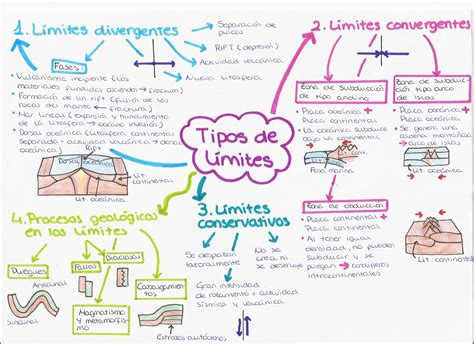 1. Límites divergentes
Separación de
placas
RIFT (depresión)
Actividad volcánica
Nueva litosfera
Fases:
• Vulcanismo incipiente (los
materiales fundidos ascienden → fractura)
• Formación de un rift (fusión de las
rocas del manto ← fractura)
• Mar lineal (expansión y hundimiento
de la litosfera → océano)
• Dorsal oceánica (litosfera continental
→ oceánica)
Rift
Dorsal oceánica
Lit.
continental
Lit. oceánica
Tipos de
Límites
2. Límites convergentes
Zona de subducción
tipo andino
Placa oceánica +
Placa continental
La oceánica subduce
bajo la continental
Lit. cont.
Fosa marina
Zona de subducción
tipo arco de
islas
Placa oceánica +
Placa oceánica
Se genera una
Lit. oceánica
Zona de obducción
• Placa continental +
Placa continental
• Al tener igual
densidad, no pueden
subducir y se
pliegan → cordilleras
intracontinentales
Lit. continental
3. Límites
conservativos
Se desplazan
lateralmente
No se
crea ni
se destruye
Gran intensidad
de rozamiento → actividad
sísmica y volcánica
4. Procesos geológicos
en los límites
Pliegues
Fallas
Diaclasas
Cabalgamientos
Anticlinal
Sinclinal
Magmatismo
y metamorfismo
Estratos autóctonos